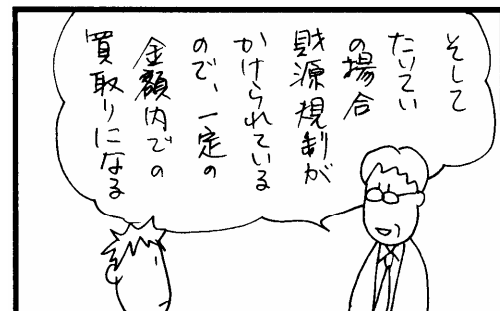 そして
たいてい
の場合
財源規制が
かけられている
ので、一定の
金額内での
買取りになる